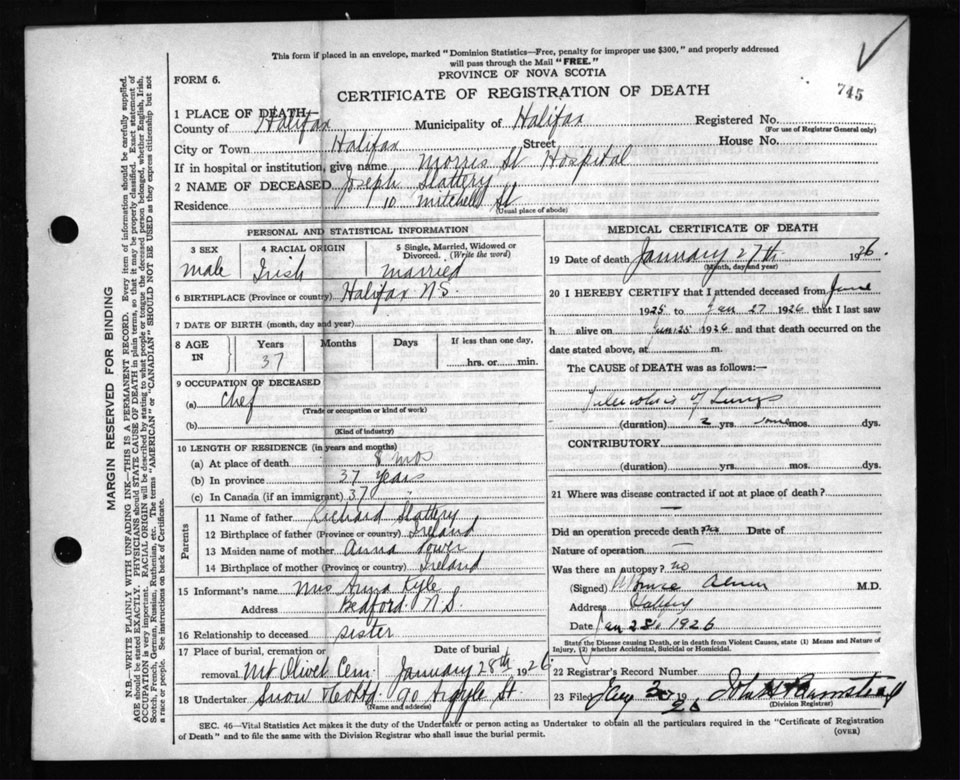 This form if placed in an envelope, marked "Dominion Statistics—Free, penalty for improper use $300," and properly addressed
will pass through the Mail "FREE."
PROVINCE OF NOVA SCOTIA
FORM 6.
CERTIFICATE OF REGISTRATION OF DEATH
745
1 PLACE OF DEATH:
County of Halifax Municipality of Halifax Registered No.
(For use of Registrar General only)
City or Town Halifax Street House No.
If in hospital or institution, give name Morris St Hospital
2 NAME OF DECEASED Joseph Slattery
Residence 10 Mitchell St
(Usual place of abode)
PERSONAL AND STATISTICAL INFORMATION
3 SEX
male
4 RACIAL ORIGIN
Irish
5 Single, Married, Widowed or
Divorced. (Write the word)
married
6 BIRTHPLACE (Province or country) Halifax N.S.
7 DATE OF BIRTH (month, day and year)
8 AGE IN
Years Months Days If less than one day,
37 hrs. or min.
9 OCCUPATION OF DECEASED
(a) Chef
(Trade or occupation or kind of work)
(b)
(Kind of industry)
10 LENGTH OF RESIDENCE (in years and months)
(a) At place of death 8 mos
(b) In province 37 years
(c) In Canada (if an immigrant) 37 "
Parents
11 Name of father Richard Slattery
12 Birthplace of father (Province or country) Ireland
13 Maiden name of mother Anna Power
14 Birthplace of mother (Province or country) Ireland
15 Informant's name Mrs Anna Kyle
Address Bedford N.S.
16 Relationship to deceased sister
17 Place of burial, cremation or Date of burial
removal Mt Olivet Cem January 28th 1926
18 Undertaker Snow & Co Ltd. 90 Argyle St.
(Name and address)
MEDICAL CERTIFICATE OF DEATH
19 Date of death January 27th 1926
(Month, day and year)
20 I HEREBY CERTIFY that I attended deceased from June
1925 to Jan 27 1926 that I last saw
h alive on Jan 25 1926 and that death occurred on the
date stated above, at m.
The CAUSE of DEATH was as follows:—
Tuberculosis of Lungs
(duration) 2 yrs. some mos. dys.
CONTRIBUTORY
(duration) yrs. mos. dys.
21 Where was disease contracted if not at place of death?
Did an operation precede death? no Date of
Nature of operation —
Was there an autopsy? no
(Signed) M.D.
Address Halifax
Date Jan 28 1926
State the Disease causing Death, or in death from Violent Causes, state (1) Means and Nature of
Injury, (2) whether Accidental, Suicidal or Homicidal.
22 Registrar's Record Number
23 Filed Jan 30 1926
(Division Registrar)
SEC. 46—Vital Statistics Act makes it the duty of the Undertaker or person acting as Undertaker to obtain all the particulars required in the "Certificate of Registration
of Death" and to file the same with the Division Registrar who shall issue the burial permit.
(OVER)
MARGIN RESERVED FOR BINDING
N.B.—WRITE PLAINLY WITH UNFADING INK—THIS IS A PERMANENT RECORD. Every item of information should be carefully supplied.
AGE should be stated EXACTLY. PHYSICIANS should STATE CAUSE OF DEATH in plain terms, so that it may be properly classified. Exact statement of
OCCUPATION is very important. RACIAL ORIGIN will be described by stating to what people or tongue the deceased person belonged, whether English, Irish,
Scotch, French, German, Russian, Ruthenian, etc. The terms "AMERICAN" or "CANADIAN" SHOULD NOT BE USED as they express citizenship but not
a race or people. See instructions on back of Certificate.